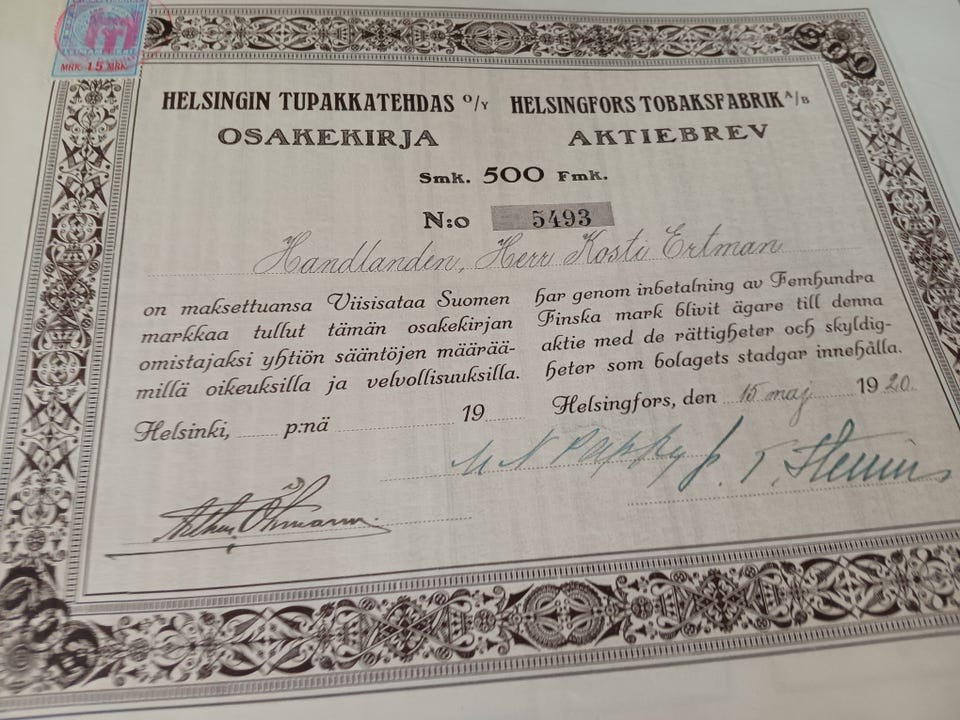 MRK. 15 MRK.
500
HELSINGIN TUPAKKATEHDAS O/Y
OSAKEKIRJA
HELSINGFORS TOBAKSFABRIK A/B
AKTIEBREV
Smk. 500 Fmk.
N:o 5493
Handlanden, Herr Kosti Ertman
on maksettuansa Viisisataa Suomen
markkaa tullut tämän osakekirjan
omistajaksi yhtiön sääntöjen määrää-
millä oikeuksilla ja velvollisuuksilla.
Helsinki, p:nä 19
har genom inbetalning av Femhundra
Finska mark blivit ägare till denna
aktie med de rättigheter och skyldig-
heter som bolagets stadgar innehålla.
Helsingfors, den 15 maj 1920.
Arthur Öhmann